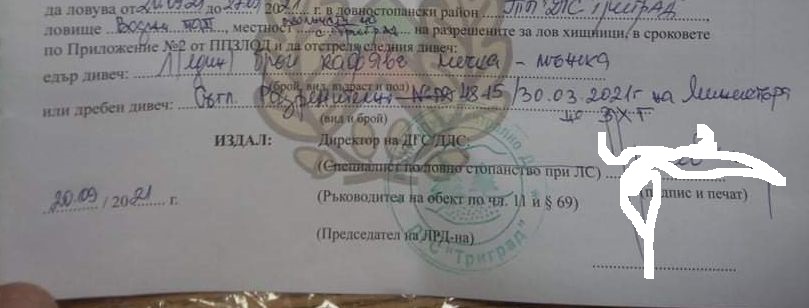 да ловува от 20.09.21 до 27.09 2021 г. в ловностопански район ТП "ДГС Триград"
ловище Водни пад, местност с. Триград на разрешените за лов хищници, в сроковете
по Приложение №2 от ППЗЛОД и да отстреля следния дивеч:
едър дивеч: 1 (един) брой кафява мечка - мъжка
(брой, вид, възраст и пол)
или дребен дивеч: Съгл. Разрешително № 4815/30.03.2021г на Министъра
(вид и брой)
ИЗДАЛ: Директор на ДГС/ДДС:
(Специалист по ловно стопанство при ЛС)
20.09 / 2021 г.
(подпис и печат)
(Ръководител на обект по чл. 11 и § 69)
(Председател на ЛРД-на)
ДГС "Триград"